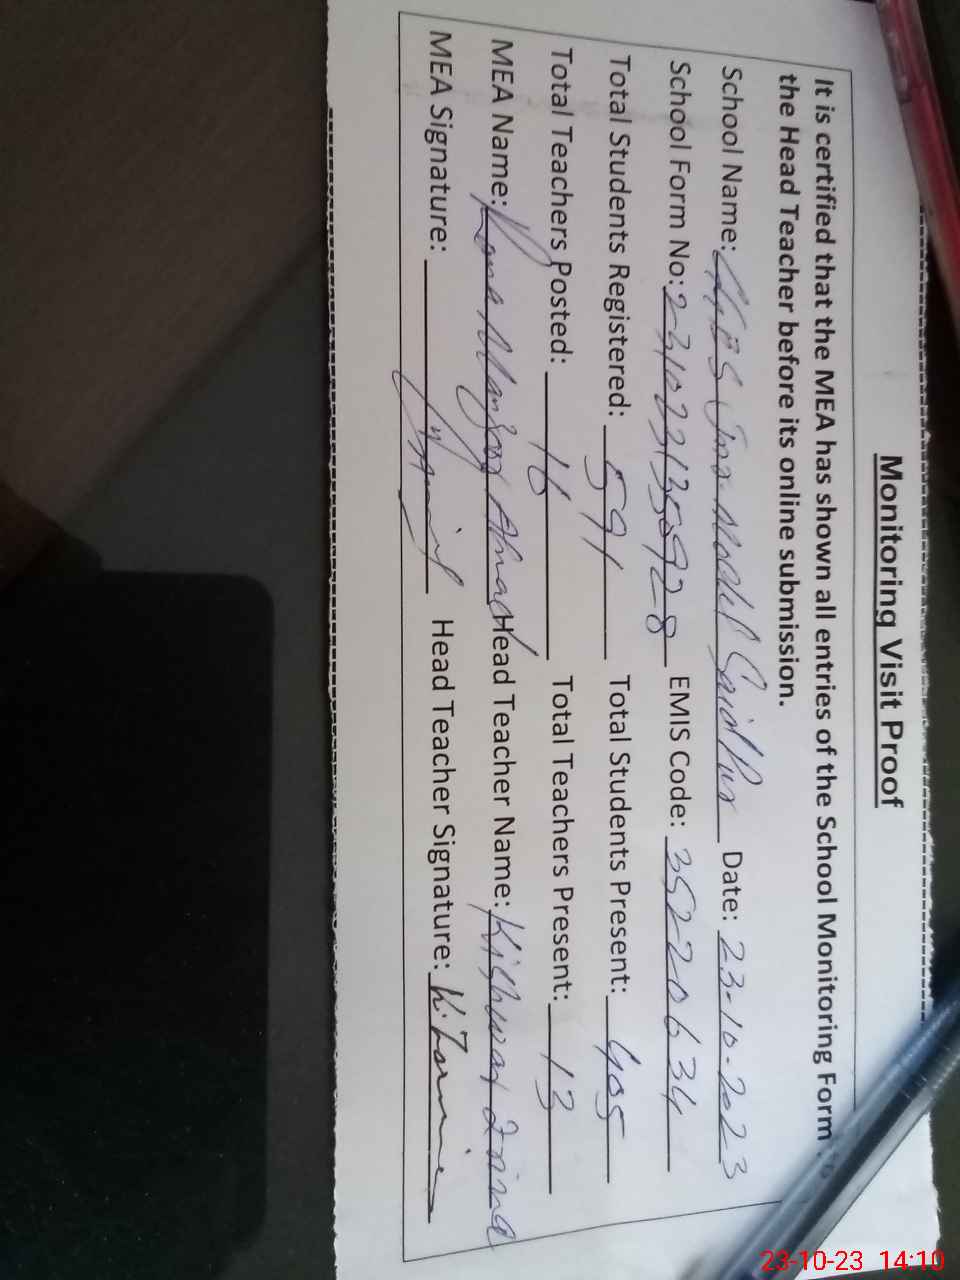 Monitoring Visit Proof
It is certified that the MEA has shown all entries of the School Monitoring Form to
the Head Teacher before its online submission.
School Name: Date: 23-10-2023
School Form No: EMIS Code: 35220634
Total Students Registered: 591 Total Students Present: 405
Total Teachers Posted: 16 Total Teachers Present: 13
MEA Name: Rana Manzoor Ahmad Head Teacher Name: Kishwar
MEA Signature: Head Teacher Signature:
23-10-23 14:10